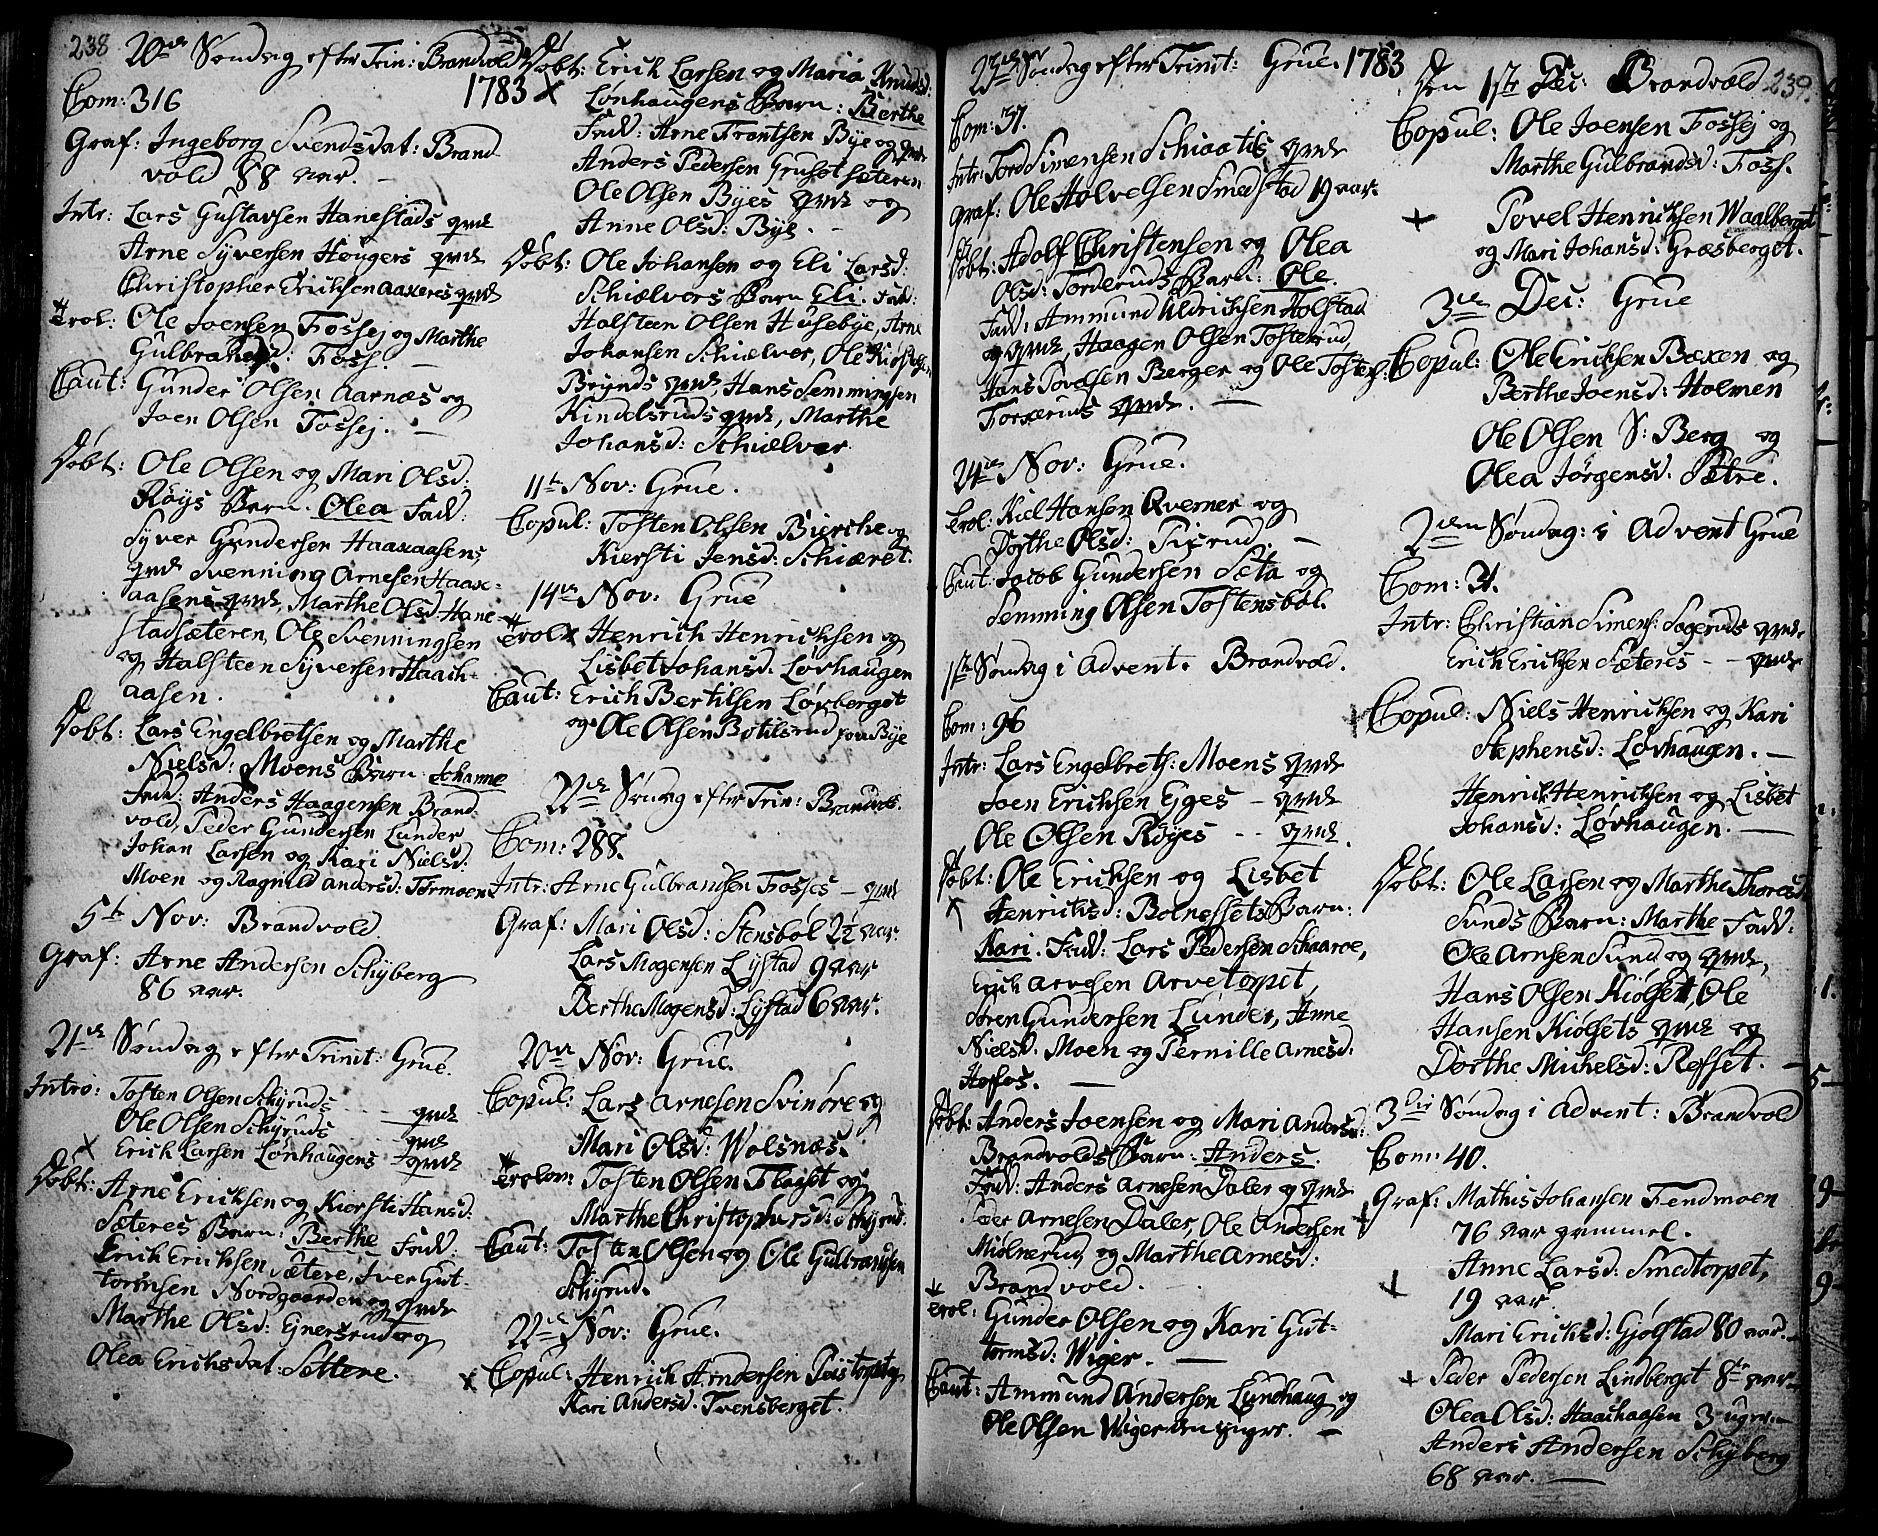 238
20de Søndag efter Trin: Brandvold
1783
Com: 316
Graf: Ingeborg Svendsdat: Brand-
vold 88 aar. -
Intr: Lars Gustavsen Hanestads qvinde
Arne Syversen Heugers qvinde
Christopher Erichsen Aaxeres qvinde
Trol: Ole Joensen Fossej og Marthe
Gulbrandsd: Foss. -
Caut: Gunder Olsen Aarnæs og
Joen Olsen Fossej. -
Døbt: Ole Olsen og Mari Olsd:
Røys Barn. Olea Fad:
Syver Gundersen Haaxaasens
qvinde Svenning Arnesen Haax-
aasens qvinde, Marthe Olsd Hane-
stadsæteren, Ole Svenningsen
og Halsteen Syversen Haach-
aasen.
Døbt: Lars Engelbretsen og Marthe
Nielsd: Moens Barn: Johanne
Fad: Anders Haagensen Brand
vold, Peder Gundersen Lunder
Johan Larsen og Kari Nielsd:
Moen og Ragnild Andersd: Tormoen
5te Nov: Brandvold
Graf: Arne Andersen Schyberg
86 aar.
21de Søndag efter Trinit: Grue.
Intro: Tosten Olsen Schyruds - - - qvinde
Ole Olsen Schyruds - - qvinde
Erich Larsen Lønhaugens - qvinde
Døbt: Arne Erichsen og Kiersti Hansd:
Sæteres Barn: Berthe Fad:
Erich Erichsen Sætere, Iver Gut-
tormsen Nordgaarden og qvinde
Marthe Olsd: Ejnersrud og
Olea Erichsdat: Settere.
Døbt: Erich Larsen og Maria Knudsd:
Lønhaugens Barn: Berthe
Fad: Arne Frantsen Bye og qvinde
Anders Pedersen Grusetsæteren
Ole Olsen Byes qvinde og
Anne Olsd: Bye. -
Døbt: Ole Johansen og Eli Larsd:
Schiælvers Barn Eli. Fad:
Halsteen Olsen Husebye, Arne
Johansen Schiælver, Ole
Brynds qvinde Hans Semmingsen
Kindelsruds qvinde, Marthe
Johansd: Schiælver
11te Nov: Grue.
Copul: Tosten Olsen Bierche og
Kiersti Jensd: Schiæret.
14de Nov: Grue
Trol: Henrich Henrichsen og
Lisbet Johansd: Løvhaugen
Caut: Erich Bertilsen Løvberget
og Ole Olsen Botilsrud paa Bye
22de Søndag efter Trin: Brandvold.
Com: 288.
Intr: Arne Gulbrandsen Fosses - qvinde
Graf: Mari Olsd: Stensbøl 2½ aar.
Lars Mogensen Lystad 9 aar
Berthe Mogensd: Lystad 6 aar.
20de Nov: Grue.
Copul: Lars Arnesen Svinøre og
Mari Olsd: Wolsnæs.
Trolov: Tosten Olsen Flaiset og
Marthe Christophersd: Schyrud
Caut: Tosten Olsen og Ole Gulbrandsen
Schyrud.
22de Nov: Grue.
Copul: Henrich Andersen og
Kari Andersd. Tvensberget.
23de Søndag efter Trinit: Grue. 1783
Com: 37.
Intr: Tord Simensen Schiaatis qvinde
Graf: Ole Holvelsen Smedstad 19 aar.
Døbt: Adolf Christensen og Olea
Olsd: Torderuds Barn: Ole.
Fad: Ammund Aldrichsen Holstad
og qvinde, Haagen Olsen Tosterud,
Hans Povelsen Berger og Ole
Torxeruds qvinde. -
24de Nov: Grue.
Trol: Kiel Hansen Qverner og
Dorthe Olsd: Sierud. -
Caut: Jacob Gundersen Sæta og
Semming Olsen Tostensbøl.
1ste Søndag i Advent. Brandvold.
Com: 96
Intr: Lars Engelbrets: Moens qvinde
Joen Erichsen Eges - qvinde
Ole Olsen Røyes - - qvinde.
Døbt: Ole Erichsen og Lisbet
Henrichsd: Bolnessets Barn:
Kari. Fad: Lars Pedersen Schaaroe,
Erich Arvesen Arvetorpet,
Søren Gundersen Lunder, Anne
Nielsd: Moen og Pernille Arnesd:
Hoffos. -
Døbt: Anders Joensen og Mari Andersd:
Brandvolds Barn: Anders.
Fad: Anders Arnesen Daler og qvinde
Peder Arnesen Daler, Ole Andersen
Miølnerud og Marthe Arnesd:
Brandvold.
Trol: Gunder Olsen og Kari Gut-
tormsd: Wiger. -
Caut: Ammund Andersen Lundhaug og
Ole Olsen Wiger den yngre. -
239.
Den 1ste Dec: Brandvold
Copul: Ole Joensen Fossej og
Marthe Gulbrandsd: Foss.
Povel Henrichsen Waalberget
og Mari Johansd: Græsberget.
3de Dec: Grue
Copul: Ole Erichsen Bæxen og
Berthe Joensd: Holmen
Ole Olsen S: Berg og
Olea Jørgensd. Sætre.
2den Søndag: i Advent Grue
Com: 21.
Intr: Christian Simens: Sogeruds qvinde.
Erich Erichsen Sæteres - - qvinde
Copul: Niels Henrichsen og Kari
Stephensd: Løvhaugen. -
Henrich Henrichsen og Lisbet
Johansd: Løvhaugen. -
Døbt: Ole Larsen og Marthe Thoresd
Sunds Barn: Marthe Fad:
Ole Arnsen Sund og qvinde,
Hans Olsen Kiølset, Ole
Hansen Kiølsets qvinde og
Dorthe Michelsd: Refset. -
3die Søndag i Advent: Brandvold
Com: 40.
Graf: Mathis Johansen Tendmoen
76 aar gammel.
Anne Larsd: Smedtorpet,
19 aar.
Mari Erichsd: Gjølstad 80 aar. -
Peder Pedersen Lindberget 8te aar -
Olea Olsd: Haachaasen 3 uger. -
Anders Andersen Schyberg
68 aar. -